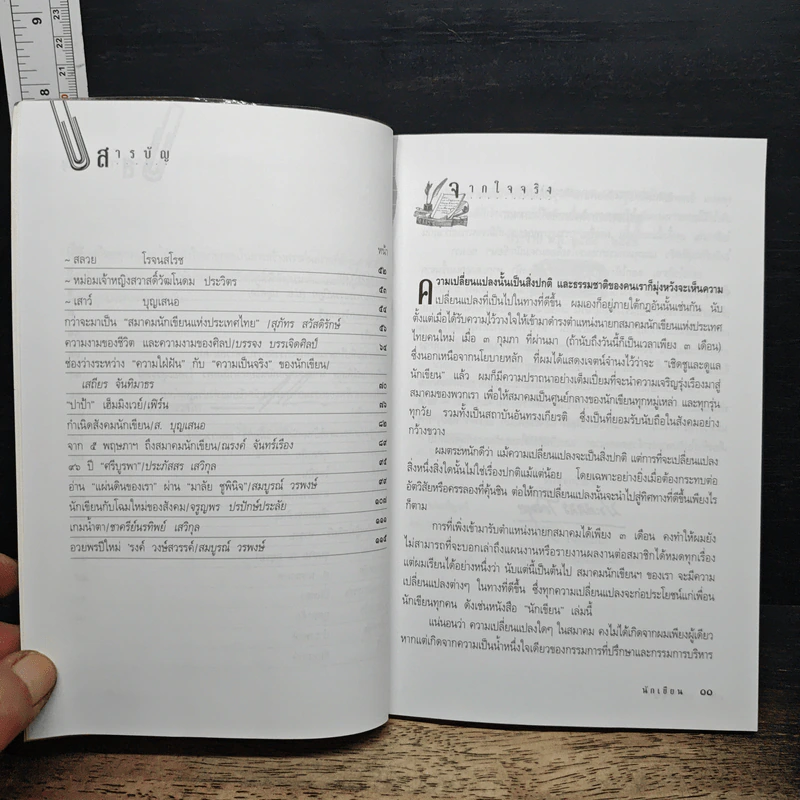 สารบัญ
หน้า
~ สลวย โรจนสโรช ๕๒
~ หม่อมเจ้าหญิงสวาสดิ์วัฒโนดม ประวิตร ๕๓
~ เสาว์ บุญเสนอ ๕๔
กว่าจะมาเป็น "สมาคมนักเขียนแห่งประเทศไทย" /สุภัทร สวัสดิรักษ์ ๕๖
ความงามของชีวิต และความงามของศิลป/บรรจง บรรเจิดศิลป์ ๖๔
ช่องว่างระหว่าง "ความใฝ่ฝัน" กับ "ความเป็นจริง" ของนักเขียน/
เสถียร จันทิมาธร ๗๐
"ปาป้า" เฮ็มมิงเวย์/เพิร์น ๗๖
กำเนิดสังคมนักเขียน/ส. บุญเสนอ ๘๒
จาก ๕ พฤษภาฯ ถึงสมาคมนักเขียน/ณรงค์ จันทร์เรือง ๘๙
๙๖ ปี "ศรีบูรพา"/ประภัสสร เสวิกุล ๙๕
อ่าน "แผ่นดินของเรา" ผ่าน "มาลัย ชูพินิจ"/สมบูรณ์ วรพงษ์ ๙๙
นักเขียนกับโฉมใหม่ของสังคม/จรูญพร ปรปักษ์ประลัย ๑๐๗
เกมน้ำตา/ชาครีย์นรทิพย์ เสวิกุล ๑๑๑
อวยพรปีใหม่ 'รงค์ วงษ์สวรรค์/สมบูรณ์ วรพงษ์ ๑๑๕
จากใจจริง
ความเปลี่ยนแปลงนั้นเป็นสิ่งปกติ และธรรมชาติของคนเราก็มุ่งหวังจะเห็นความ
เปลี่ยนแปลงที่เป็นไปในทางที่ดีขึ้น ผมเองก็อยู่ภายใต้กฎอันนั้นเช่นกัน นับ
ตั้งแต่เมื่อได้รับความไว้วางใจให้เข้ามาดำรงตำแหน่งนายกสมาคมนักเขียนแห่งประเทศ
ไทยคนใหม่ เมื่อ ๓ กุมภา ที่ผ่านมา (ถ้านับถึงวันนี้ก็เป็นเวลาเพียง ๓ เดือน)
ซึ่งนอกเหนือจากนโยบายหลัก ที่ผมได้แสดงเจตน์จำนงไว้ว่าจะ "เชิดชูและดูแล
นักเขียน" แล้ว ผมก็มีความปรารถนาอย่างเต็มเปี่ยมที่จะนำความเจริญรุ่งเรืองมาสู่
สมาคมของพวกเรา เพื่อให้สมาคมเป็นศูนย์กลางของนักเขียนทุกหมู่เหล่า และทุกรุ่น
ทุกวัย รวมทั้งเป็นสถาบันอันทรงเกียรติ ซึ่งเป็นที่ยอมรับนับถือในสังคมอย่าง
กว้างขวาง
ผมตระหนักดีว่า แม้ความเปลี่ยนแปลงจะเป็นสิ่งปกติ แต่การที่จะเปลี่ยนแปลง
สิ่งหนึ่งสิ่งใดนั้นไม่ใช่เรื่องปกติแม้แต่น้อย โดยเฉพาะอย่างยิ่งเมื่อต้องกระทบต่อ
อัตวิสัยหรือครรลองที่คุ้นชิน ต่อให้การเปลี่ยนแปลงนั้นจะนำไปสู่ทิศทางที่ดีขึ้นเพียงไร
ก็ตาม
การที่เพิ่งเข้ามารับตำแหน่งนายกสมาคมได้เพียง ๓ เดือน คงทำให้ผมยัง
ไม่สามารถที่จะบอกเล่าถึงแผนงานหรือรายงานผลงานต่อสมาชิกได้หมดทุกเรื่อง
แต่ผมเรียนได้อย่างหนึ่งว่า นับแต่นี้เป็นต้นไป สมาคมนักเขียนฯ ของเรา จะมีความ
เปลี่ยนแปลงต่างๆ ในทางที่ดีขึ้น ซึ่งทุกความเปลี่ยนแปลงจะก่อประโยชน์แก่เพื่อน
นักเขียนทุกคน ดังเช่นหนังสือ "นักเขียน" เล่มนี้
แน่นอนว่า ความเปลี่ยนแปลงใดๆ ในสมาคม คงไม่ได้เกิดจากผมเพียงผู้เดียว
หากแต่เกิดจากความเป็นน้ำหนึ่งใจเดียวของกรรมการที่ปรึกษาและกรรมการบริหาร
นักเขียน ๑๑